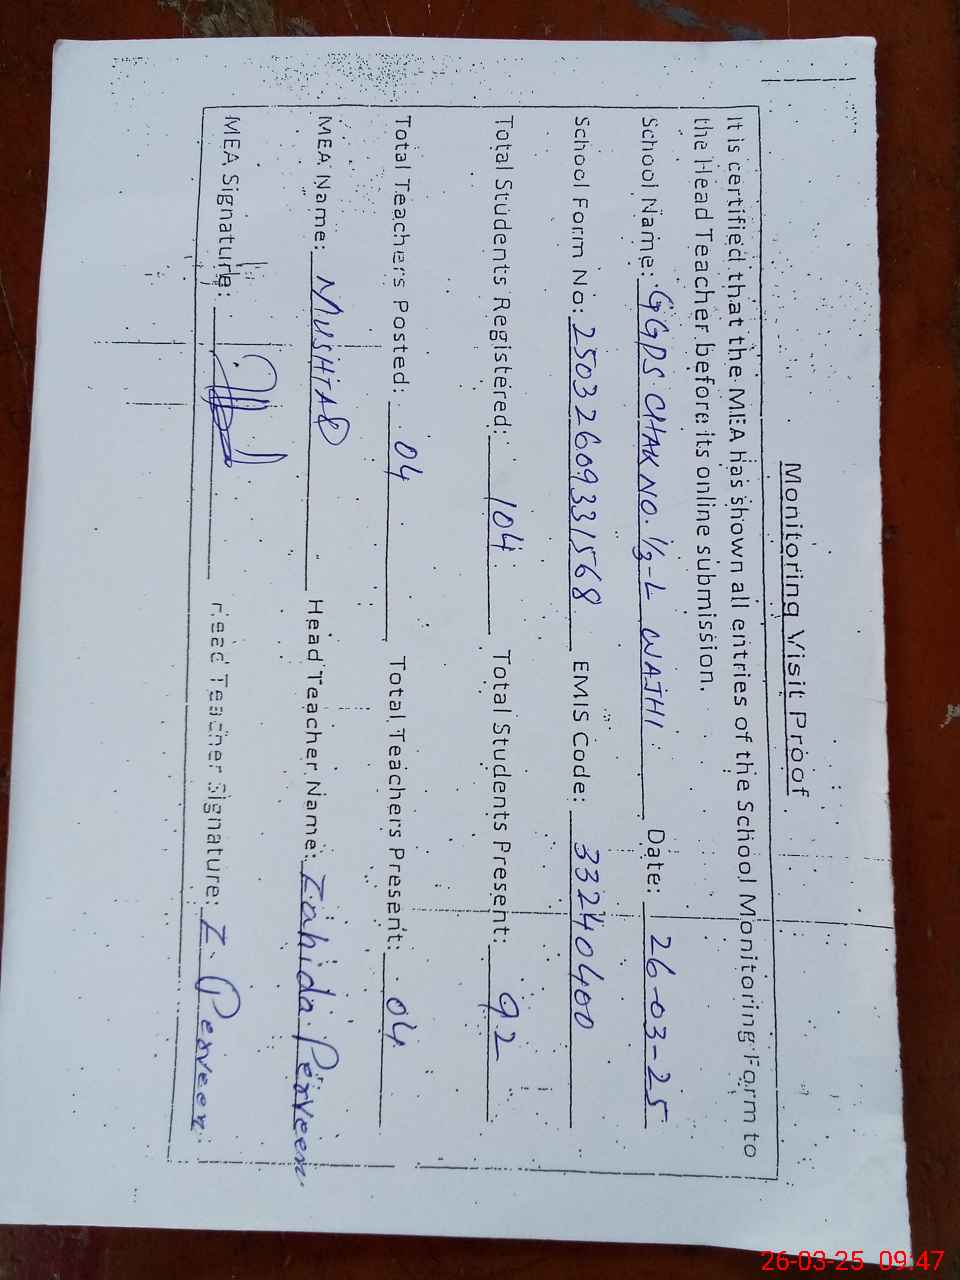 Monitoring Visit Proof
It is certified that the MEA has shown all entries of the School Monitoring Form to
the Head Teacher before its online submission.
School Name: GGPS CHAK NO. 1/3-L WAJHI Date: 26-03-25
School Form No: 25032609331568 EMIS Code: 33240400
Total Students Registered: 104 Total Students Present: 92
Total Teachers Posted: 04 Total Teachers Present: 04
MEA Name: MUSHTAQ Head Teacher Name: Zahida Perveen
MEA Signature: Head Teacher Signature: Z. Perveen
26-03-25 09:47